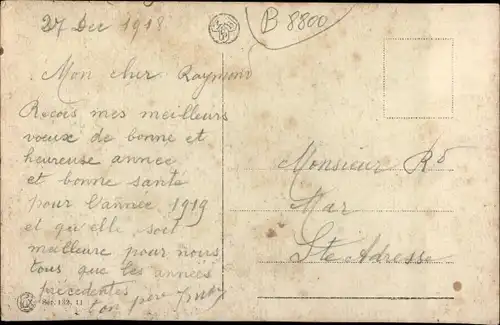 27 Dec 1918
B 8800
Mon cher Raymond
Reçois mes meilleurs
voeux de bonne et
heureuse année
et bonne santé
pour l'année 1919
et qu'elle soit
meilleure pour nous
tous que les années
précédentes
ton père
Ser. 133. 11
Monsieur Rd
Mar
Ste Adresse